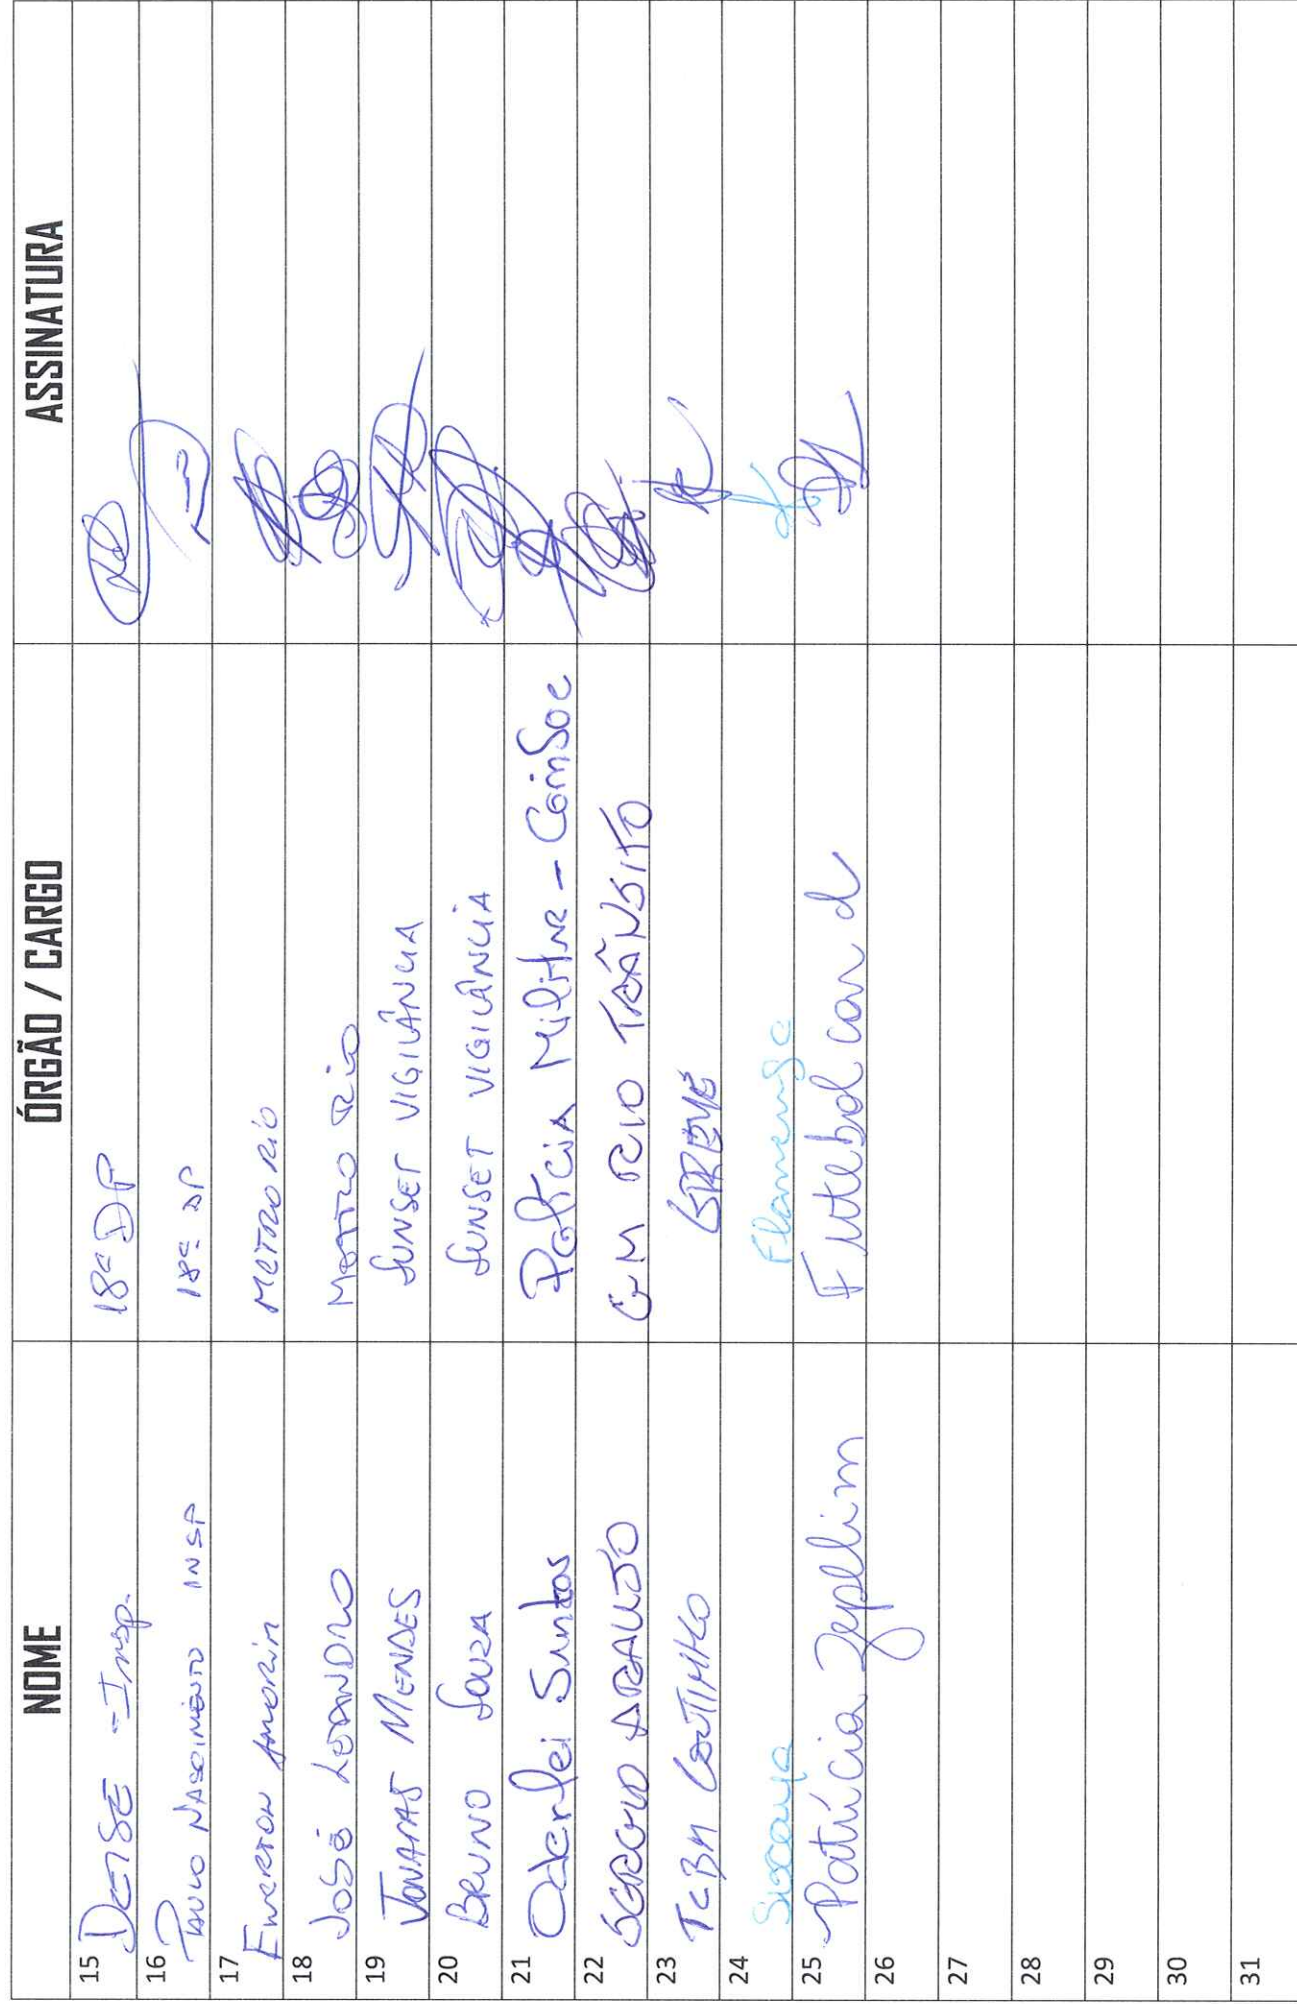 NOME ÓRGÃO / CARGO ASSINATURA
15 DEISE - Insp. 18ª DP
16 PAULO NASCIMENTO INSP 18ª DP
17 EWERTON AMORIM METRO RIO
18 JOSÉ LEANDRO METRO RIO
19 JONATAS MENDES SUNSET VIGILÂNCIA
20 BRUNO SOUZA SUNSET VIGILÂNCIA
21 Oderlei Santos Polícia Militar - Coinsoc
22 SERGIO ARAUJO GM RIO TRÂNSITO
23 TCBM COUTINHO
24 Flamengo
25 Patrícia Zepplim Futebol card
26
27
28
29
30
31